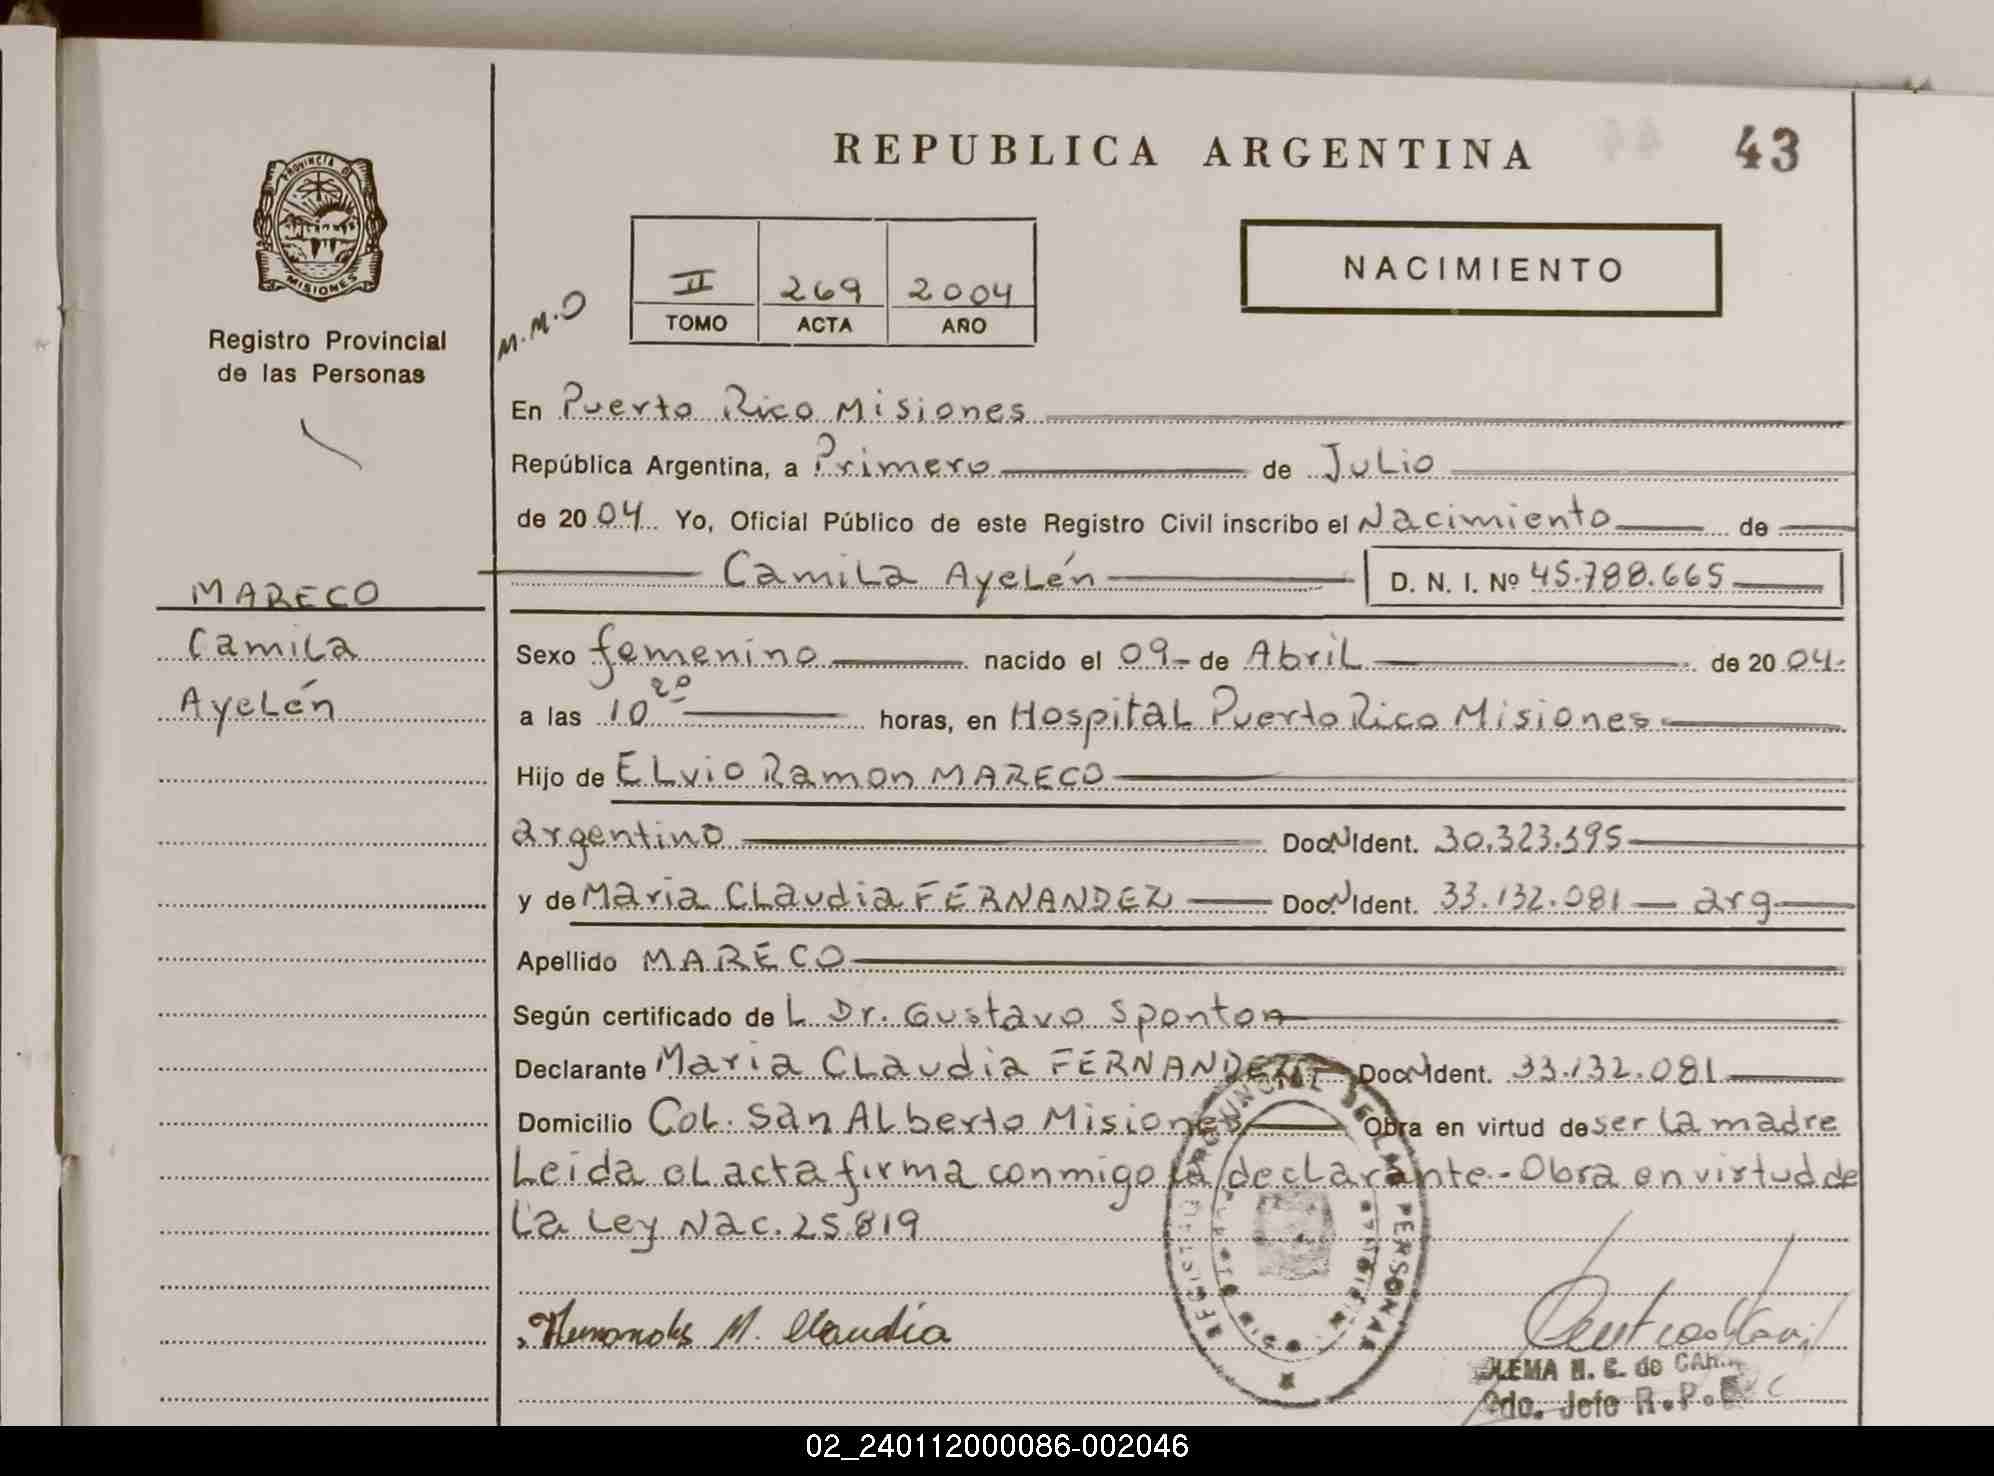 REPUBLICA ARGENTINA
43
PROVINCIA DE
MISIONES
Registro Provincial
de las Personas
M.M.O
II 269 2004
TOMO ACTA AÑO
NACIMIENTO
En Puerto Rico Misiones
República Argentina, a Primero de Julio
de 2004 Yo, Oficial Público de este Registro Civil inscribo el Nacimiento de
Camila Ayelén D. N. I. Nº 45.788.665
MARECO
Camila
Ayelén
Sexo femenino nacido el 09- de Abril de 2004-
a las 10 20 horas, en Hospital Puerto Rico Misiones
Hijo de Elvio Ramon MARECO
argentino Doc. N Ident. 30.323.395
y de Maria Claudia FERNANDEZ Doc. N Ident. 33.132.081 arg
Apellido MARECO
Según certificado de L Dr. Gustavo Sponton
Declarante Maria Claudia FERNANDEZ Doc. N Ident. 33.132.081
Domicilio Col. San Alberto Misiones Obra en virtud de ser la madre
Leida el acta firma conmigo la declarante.- Obra en virtud de
la Ley Nac. 25.819
M. Claudia
H. E. de
Jefe R.P.
02_240112000086-002046